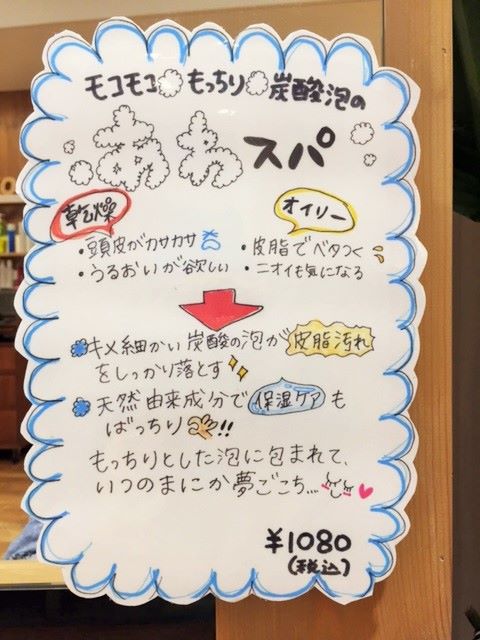 モコモコもっちり炭酸泡の
あわスパ
乾燥
オイリー
・頭皮がカサカサ
・うるおいが欲しい
・皮脂でベタつく
・ニオイも気になる
キメ細かい炭酸の泡が皮脂汚れ
をしっかり落とす
天然由来成分で保湿ケアも
ばっちり!!
もっちりとした泡に包まれて、
いつのまにか夢ごこち...
¥1080
(税込)